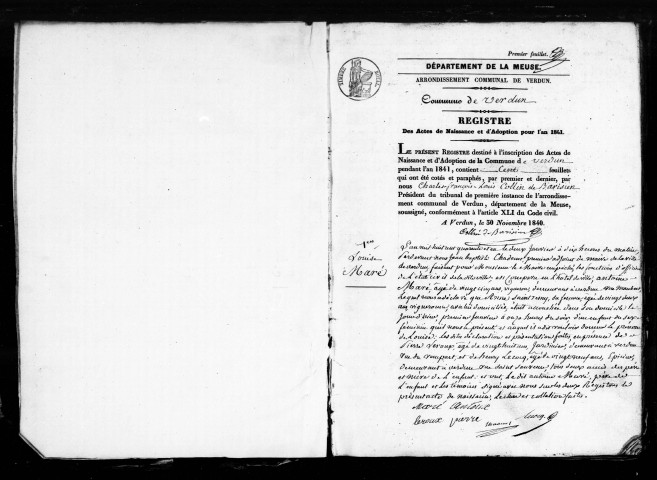 Premier feuillet.
DÉPARTEMENT DE LA MEUSE.
ARRONDISSEMENT COMMUNAL DE VERDUN.
Commune de Verdun
REGISTRE
Des Actes de Naissance et d'Adoption pour l'an 1841.
LE PRÉSENT REGISTRE destiné à l'inscription des Actes de
Naissance et d'Adoption de la Commune de Verdun
pendant l'an 1841, contient Cent feuillets
qui ont été cotés et paraphés, par premier et dernier, par
nous Charles-François-Louis Collin de Barisien
Président du tribunal de première instance de l'arrondisse-
ment communal de Verdun, département de la Meuse,
soussigné, conformément à l'article XLI du Code civil.
A Verdun, le 30 Novembre 1840.
Collin de Barisien
1er
Louise
Maré
L'an mil huit cent quarante et un le deux janvier à dix heures du matin
pardevant nous Jean Baptiste premier adjoint du maire de la ville
de Verdun, faisant pour Monsieur le Maire empêché, les fonctions d'officier
de l'état civil de la dite ville, est comparu, en l'hôtel de ville, antoine
Maré, âgé de vingt cinq ans, vigneron, demeurant à verdun
Lequel nous a déclaré que Anne, Saint remy, sa femme, agée de vingt deux
ans vigneronne, est accouchée dans son domicile le
jour d'hier, premier janvier à onze heures du soir d'un enfant du sexe
féminin, qu'il nous a présenté et auquel il a dit vouloir donner le prénom
de Louise; les dites déclaration et présentation faites en présence de
Pierre Leroux, âgé de vingt huit ans, jardinier, demeurant à verdun
rue du rempart, et de henry Lecoq, âgé de vingt neuf ans, Epicier,
demeurant à verdun rue saint sauveur, tous deux amis des père
et mère de l'enfant. et ont, le dit antoine Maré, père de
l'enfant et les témoins signé avec nous sur les deux Registres le
présent acte de naissance, Lecture et collation faite.
Maré Antoine
Leroux pierre
Lecoq